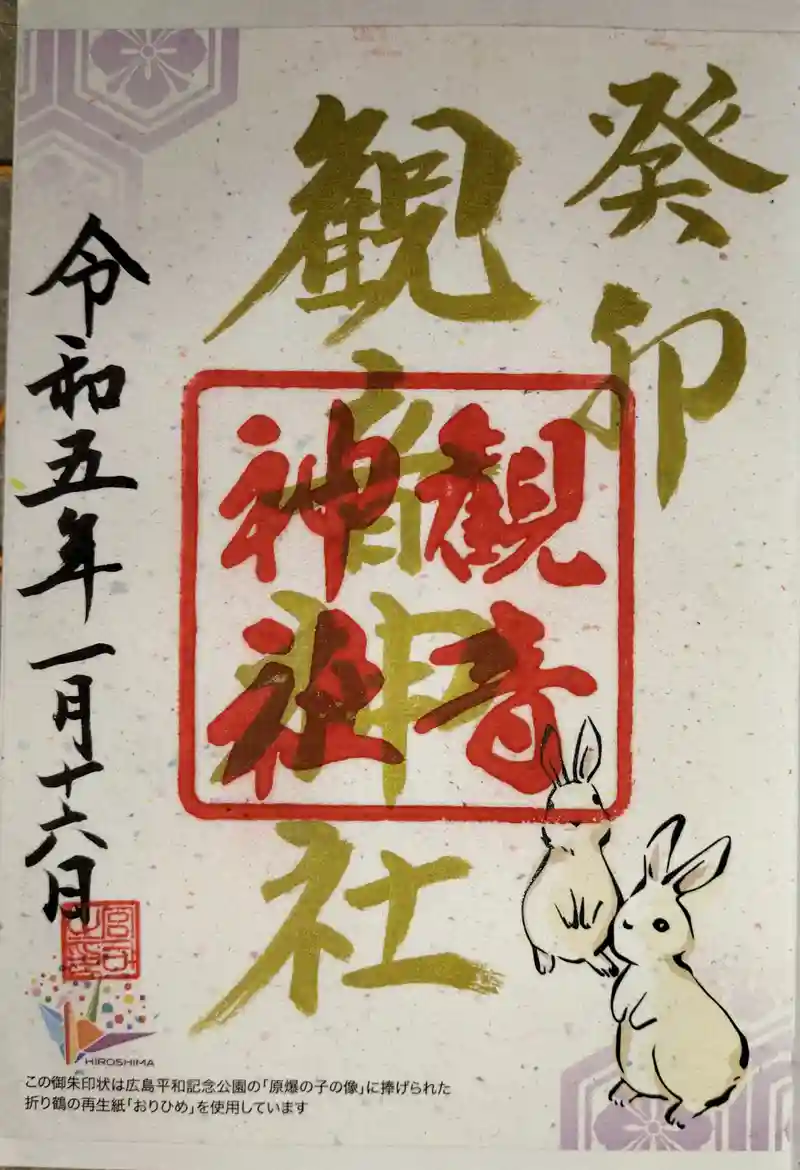 癸卯
観音神社
観音
神社
令和五年一月十六日
宮司之印
HIROSHIMA
この御朱印状は広島平和記念公園の「原爆の子の像」に捧げられた
折り鶴の再生紙「おりひめ」を使用しています